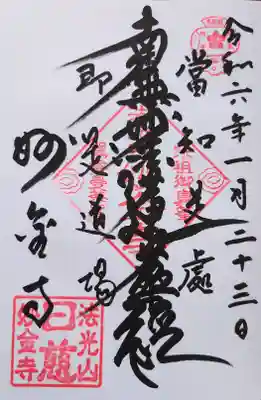 令和六年一月二十三日
當知是處
南無妙法蓮華経
即是道場
妙金寺
法光山
日慈
妙金寺